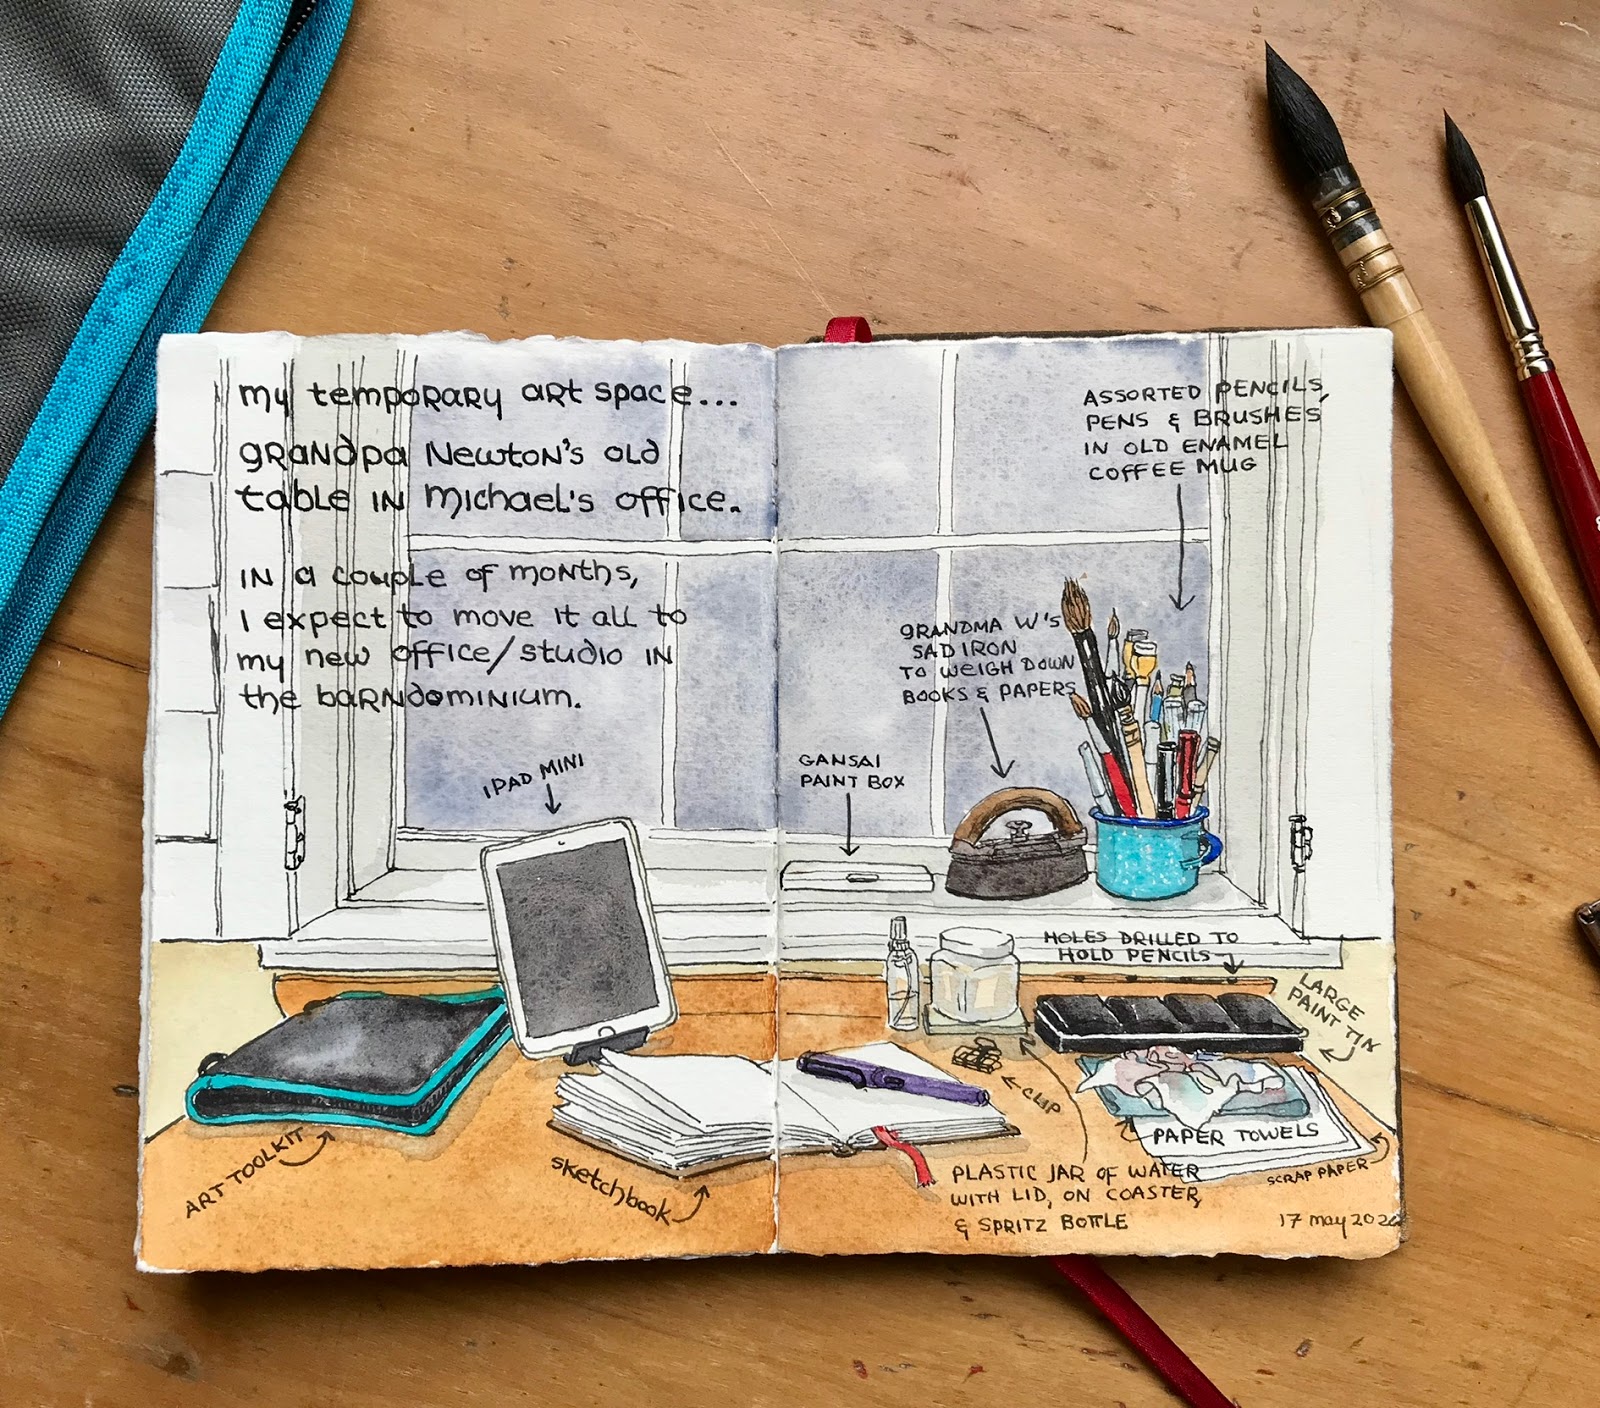 my temporary art space...
grandpa Newton's old
table in Michael's office.
In a couple of months,
I expect to move it all to
my new office/studio in
the barndominium.
IPAD MINI
ART TOOLKIT
sketchbook
ASSORTED PENCILS,
PENS & BRUSHES
IN OLD ENAMEL
COFFEE MUG
GRANDMA W'S
SAD IRON
TO WEIGH DOWN
BOOKS & PAPERS
GANSAI
PAINT BOX
HOLES DRILLED TO
HOLD PENCILS
LARGE
PAINT TIN
CLIP
PAPER TOWELS
SCRAP PAPER
PLASTIC JAR OF WATER
WITH LID, ON COASTER,
& SPRITZ BOTTLE
17 may